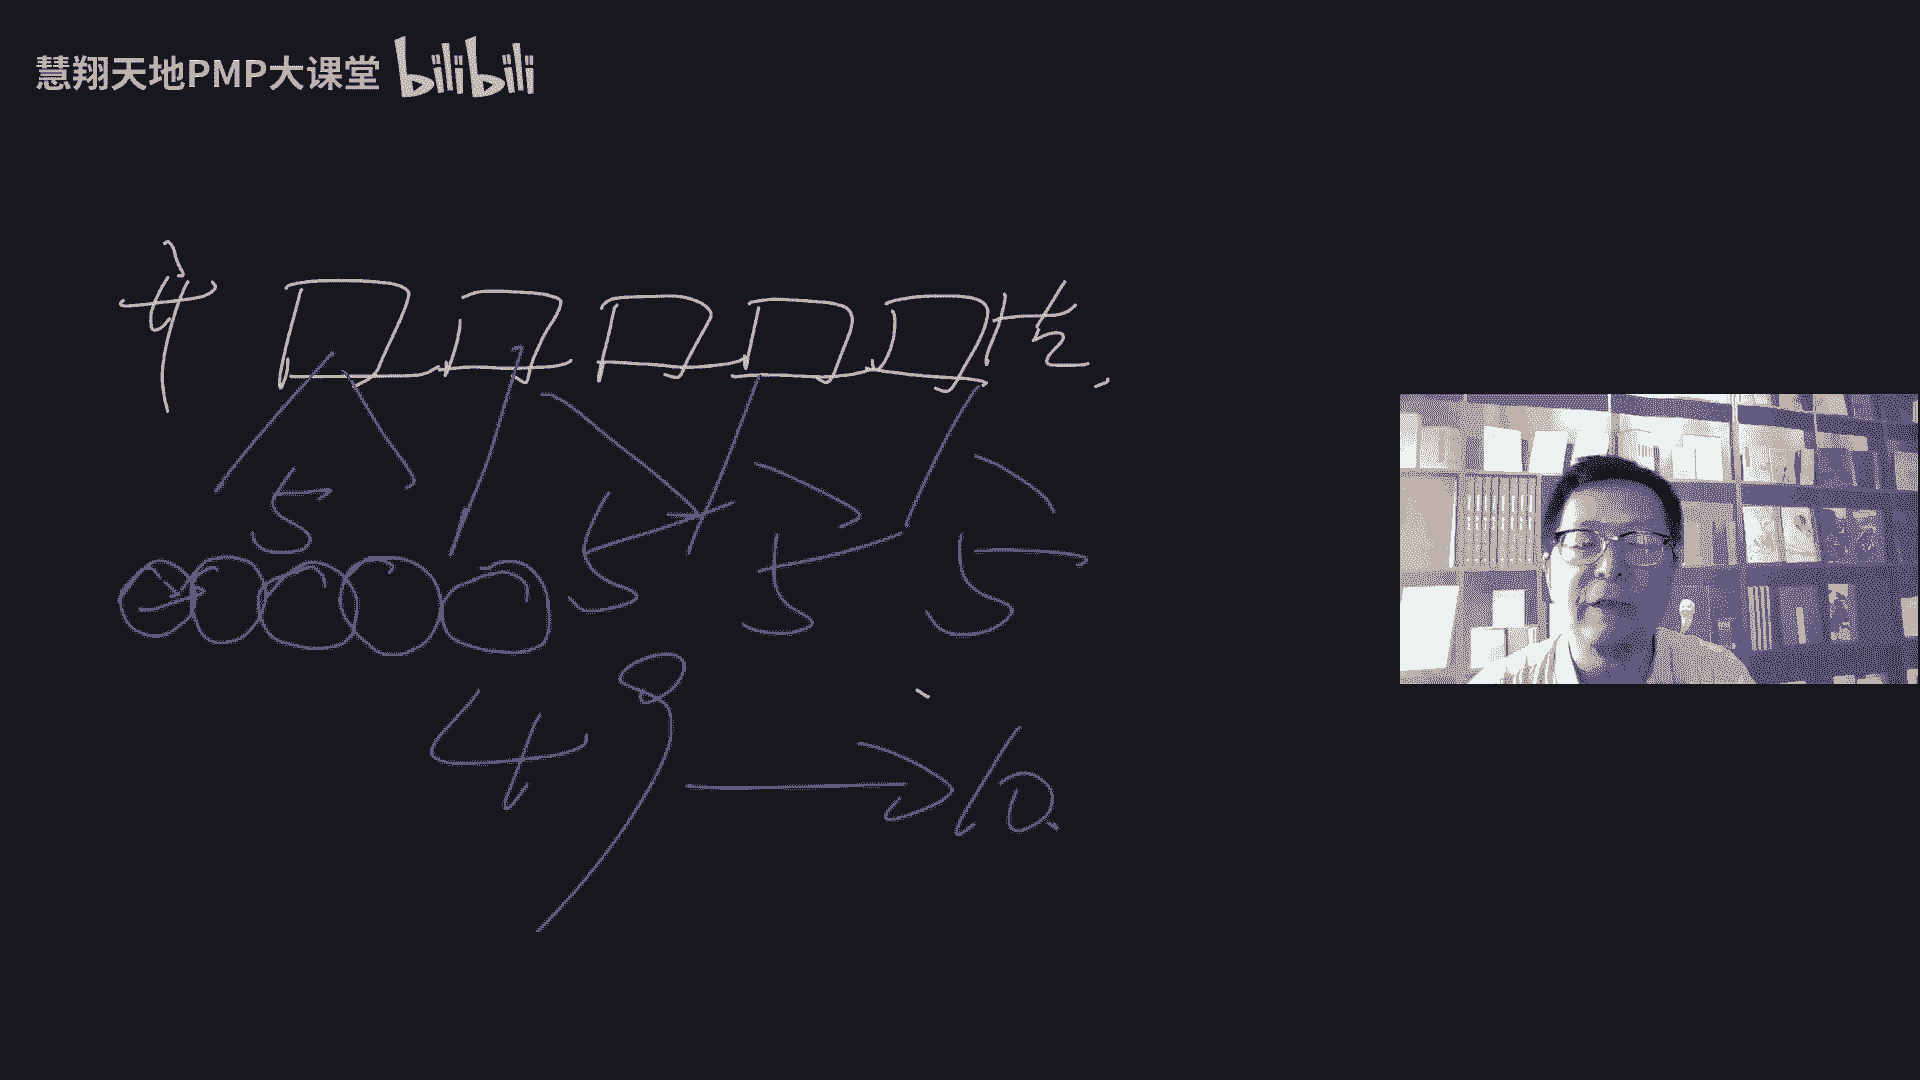 慧翔天地PMP大课堂 bilibili
5
5 5 5
4 9 10